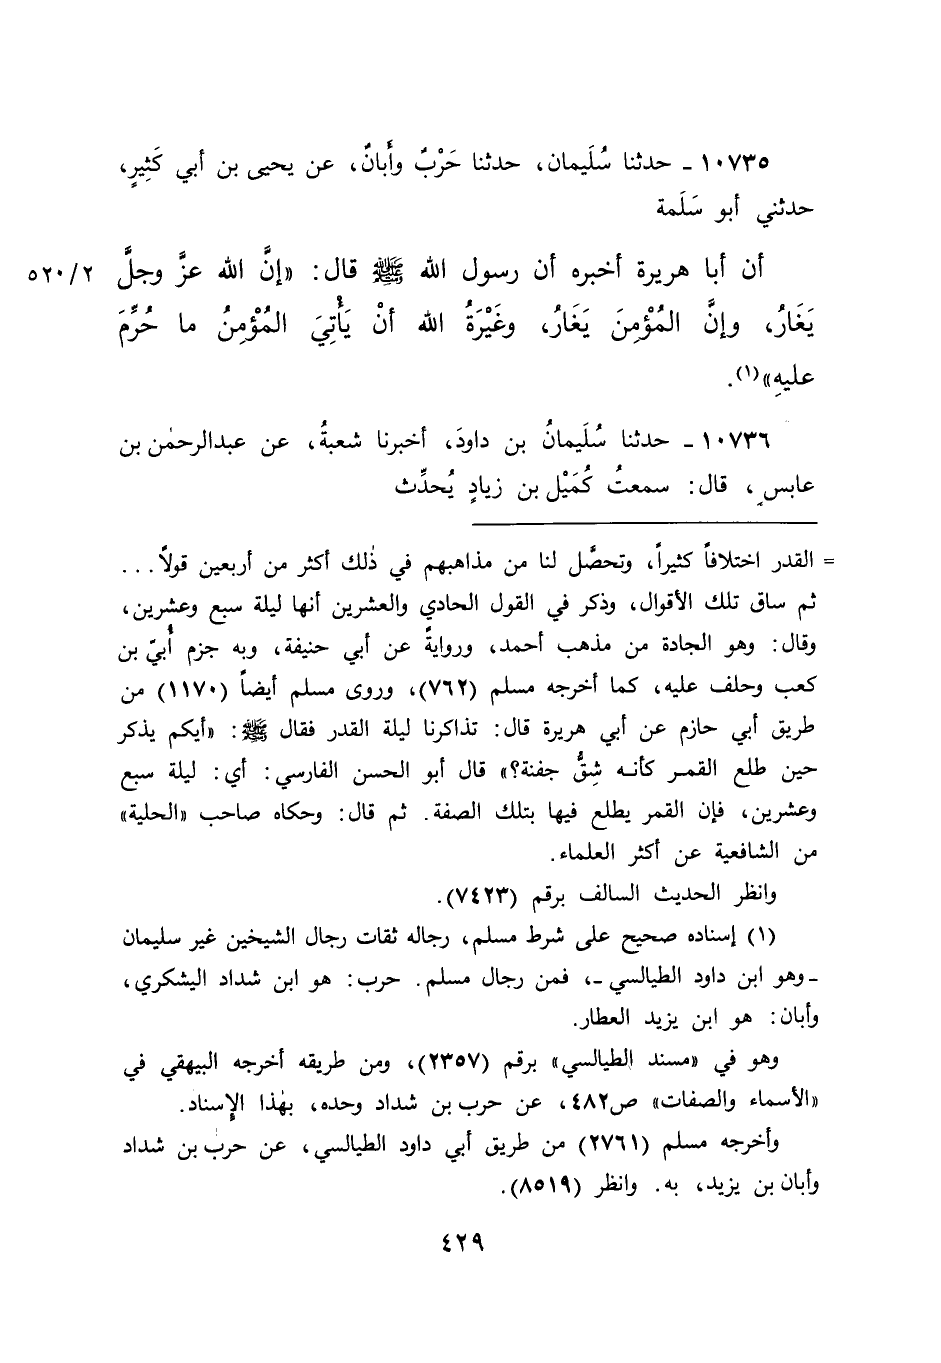 ١٠٧٣٥ ـ حدثنا سُلَيمان، حدثنا حَرْبٌ وأَبانٌ، عن يحيى بن أبي كَثِيرٍ،
حدثني أبو سَلَمة
أن أبا هريرة أخبره أن رسول الله ﷺ قال: «إنَّ الله عزَّ وجلَّ ٥٢٠/٢
يَغَارُ، وإنَّ المُؤْمِنَ يَغَارُ، وغَيْرَةُ الله أنْ يَأْتِيَ المُؤْمِنُ ما حُرِّمَ
عليهِ»(١).
١٠٧٣٦ ـ حدثنا سُلَيمانُ بن داودَ، أخبرنا شعبةُ، عن عبدالرحمٰن بن
عابسٍ، قال: سمعتُ كُمَيْل بن زيادٍ يُحدِّث
= القدر اختلافاً كثيراً، وتحصَّل لنا من مذاهبهم في ذٰلك أكثر من أربعين قولاً...
ثم ساق تلك الأقوال، وذكر في القول الحادي والعشرين أنها ليلة سبع وعشرين،
وقال: وهو الجادة من مذهب أحمد، وروايةً عن أبي حنيفة، وبه جزم أُبيّ بن
كعب وحلف عليه، كما أخرجه مسلم (٧٦٢)، وروى مسلم أيضاً (١١٧٠) من
طريق أبي حازم عن أبي هريرة قال: تذاكرنا ليلة القدر فقال ﷺ: «أيكم يذكر
حين طلع القمر كأنه شِقُّ جفنة؟» قال أبو الحسن الفارسي: أي: ليلة سبع
وعشرين، فإن القمر يطلع فيها بتلك الصفة. ثم قال: وحكاه صاحب «الحلية»
من الشافعية عن أكثر العلماء.
وانظر الحديث السالف برقم (٧٤٢٣).
(١) إسناده صحيح على شرط مسلم، رجاله ثقات رجال الشيخين غير سليمان
ـ وهو ابن داود الطيالسي ـ، فمن رجال مسلم. حرب: هو ابن شداد اليشكري،
وأبان: هو ابن يزيد العطار.
وهو في «مسند الطيالسي» برقم (٢٣٥٧)، ومن طريقه أخرجه البيهقي في
«الأسماء والصفات» ص٤٨٢، عن حرب بن شداد وحده، بهٰذا الإسناد.
وأخرجه مسلم (٢٧٦١) من طريق أبي داود الطيالسي، عن حرب بن شداد
وأبان بن يزيد، به. وانظر (٨٥١٩).
٤٢٩